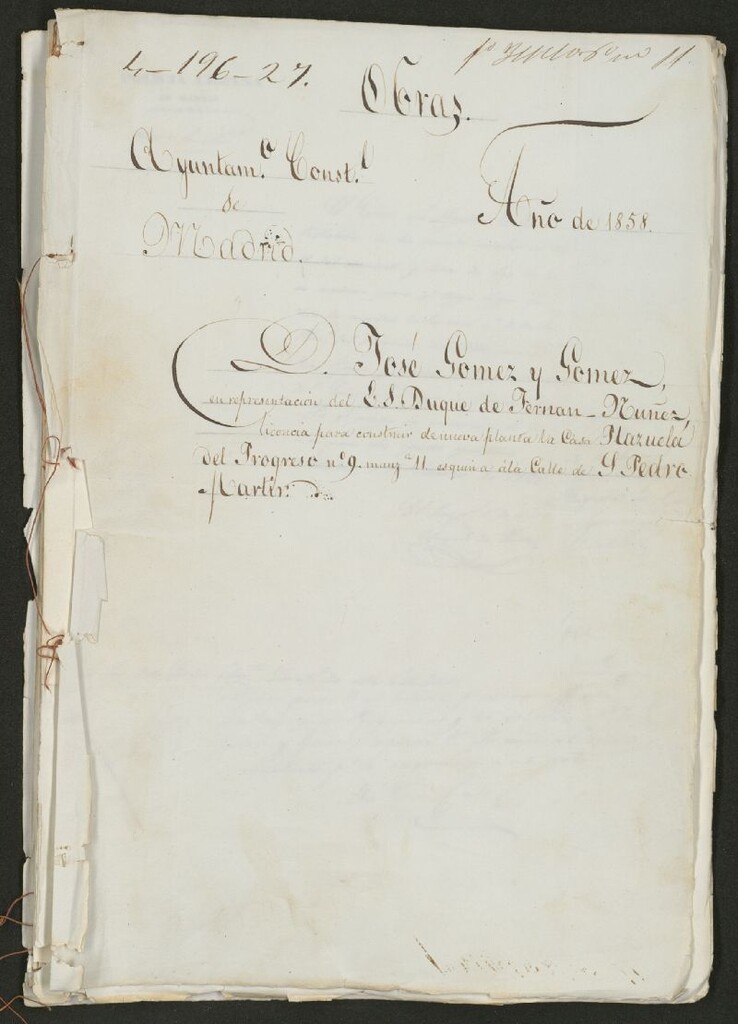 4-196-27.
Obras.
Ayuntam.º Const.l
de
Madrid.
Año de 1858.
D. José Gomez y Gomez,
en representación del E.S. Duque de Fernan-Nuñez,
licencia para construir de nueva planta la Casa Plazuela
del Progreso nº 9. manz.ª 11 esquina ála Calle de S Pedro
Martir.